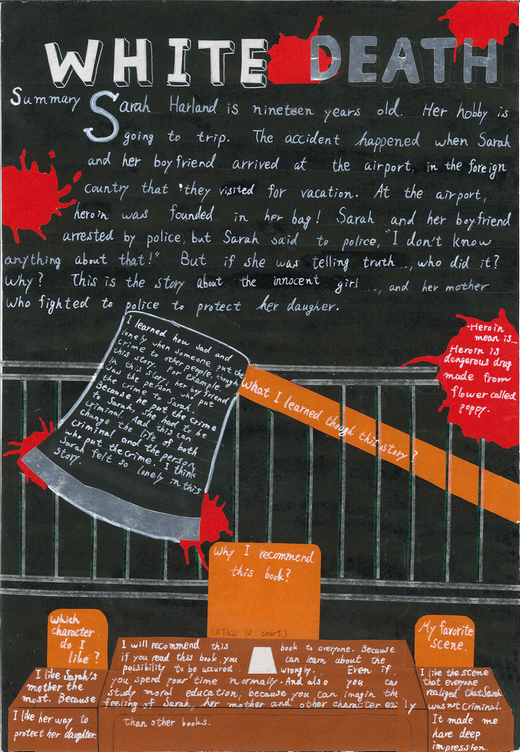 WHITE DEATH
Summary Sarah Harland is nineteen years old. Her hobby is
going to trip. The accident happened when Sarah
and her boyfriend arrived at the airport in the foreign
country that they visited for vacation. At the airport,
heroin was founded in her bag! Sarah and her boyfriend
arrested by police, but Sarah said to police, "I don't know
anything about that!" But if she was telling truth..., who did it?
Why? This is the story about the innocent girl ..., and her mother
who fighted to police to protect her daugher.
Heroin
mean is...
Heroin is
dangerous drug
made from
flower called
poppy.
I learned how sad and
lonely when someone put the
crime to other people though
this story. For example,
in this story, her friend
saw the person who put
the crime to Sarah.
Because he put the crime
to Sarah, she had to be
criminal. And this can
change the life of both
criminal and the person
who put the crime. I think
Sarah felt so lonely in this
story.
What I learned though this story?
Why I recommend
this book?
Which
character
do I
like?
I like Sarah's
mother the
most. Because
I like her way to
protect her daughter.
I will recommend this book to everyone. Because
if you read this book you can learn about the
poisibility to be accured wrongly. Even if
you spend your time normally. And also you can
study moral education, because you can imagin the
feeling of Sarah, her mother and other character easily
than other books.
My favorite
scene.
I like the scene
that everyone
realized that Sarah
was not criminal.
It made me
hare deep
impression.